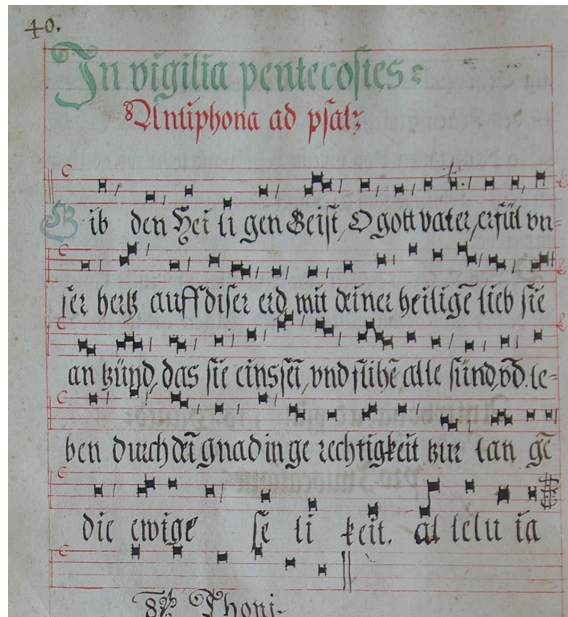 40.
In vigilia pentecostes
Antiphona ad psal
Gib den Hei li gen Geist, O gott vater, erfül vn=
ser hertz auff diser erd mit deiner heiligē lieb sie
an tzünd, das sie eins sei, vnd flihē alle sünd, le=
ben durch dei gnad in ge rechtigkeit tzur lan gē
die ewige se li keit. al lelu ia